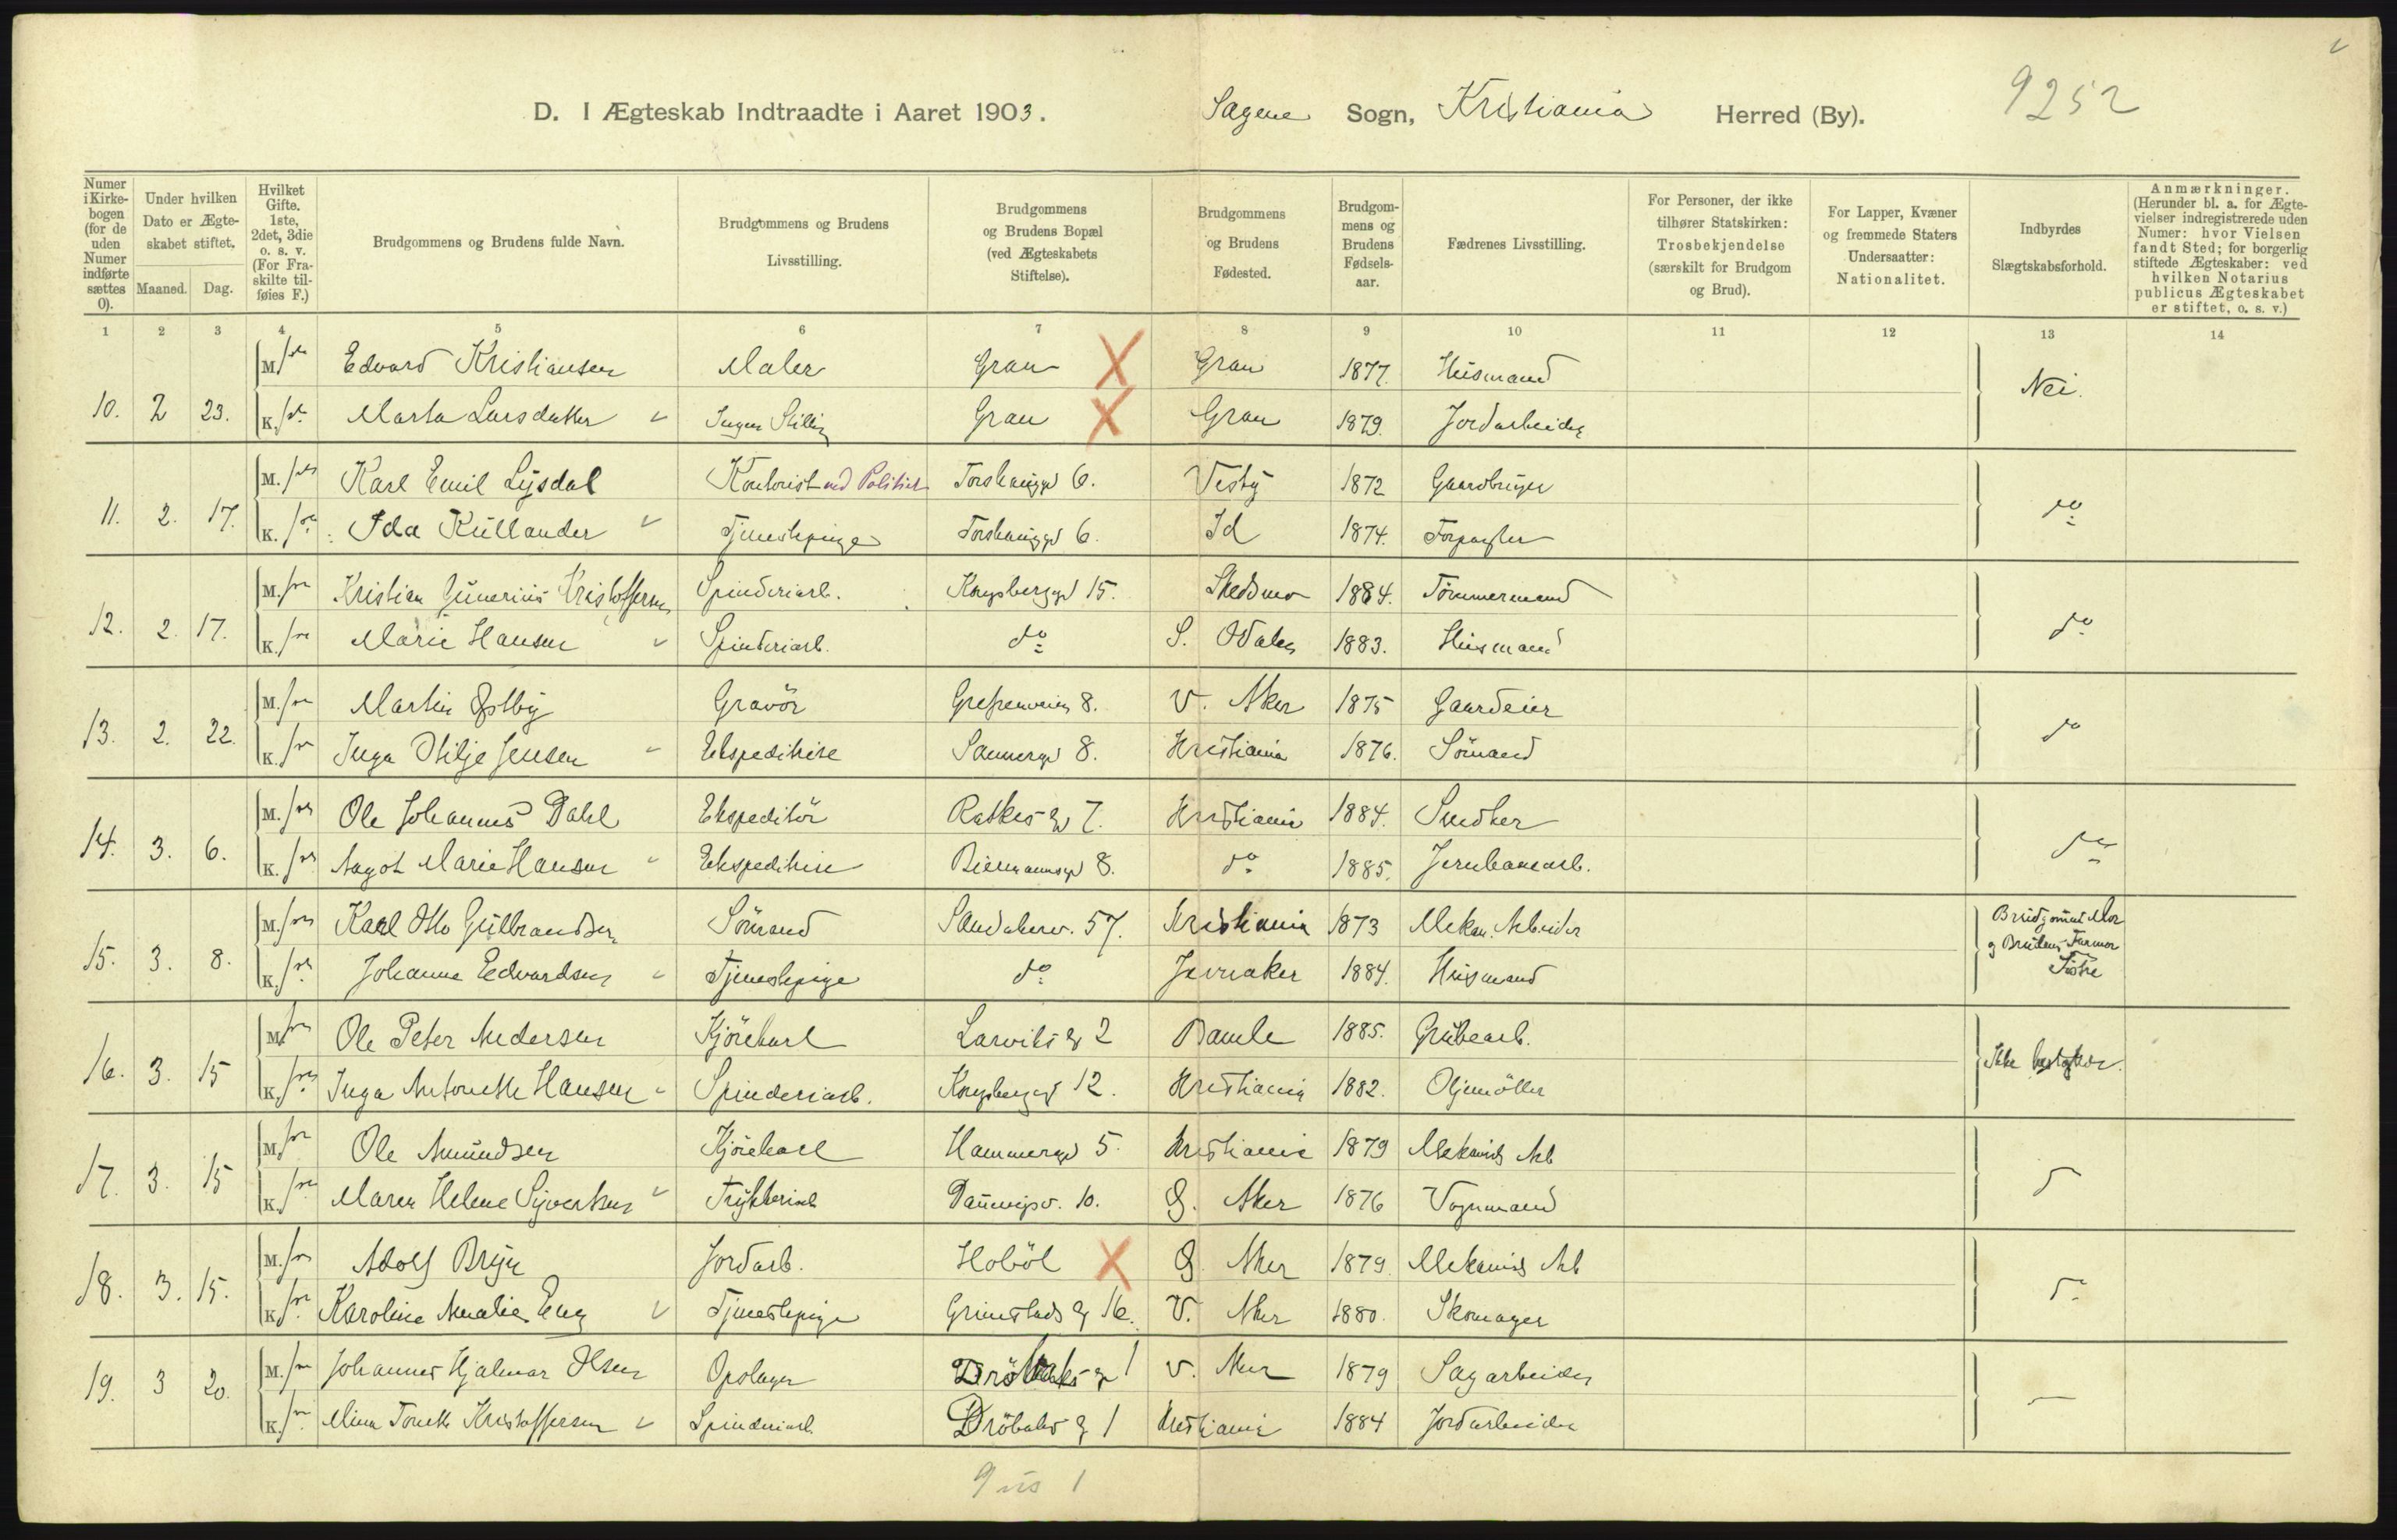 9252
D. I Ægteskab Indtraadte i Aaret 1903. Sagene Sogn, Kristiania Herred (By).
Numer i Kirkebogen (for de uden Numer indførte sættes 0).
Under hvilken Dato er Ægteskabet stiftet.
Maaned. Dag.
Hvilket Gifte. 1ste, 2det, 3die o. s. v. (For Fraskilte tilføies F.)
Brudgommens og Brudens fulde Navn.
Brudgommens og Brudens Livsstilling.
Brudgommens og Brudens Bopæl (ved Ægteskabets Stiftelse).
Brudgommens og Brudens Fødested.
Brudgommens og Brudens Fødselsaar.
Fædrenes Livsstilling.
For Personer, der ikke tilhører Statskirken: Trosbekjendelse (særskilt for Brudgom og Brud).
For Lapper, Kvæner og fremmede Staters Undersaatter: Nationalitet.
Indbyrdes Slægtskabsforhold.
Anmærkninger. (Herunder bl. a. for Ægtevielser indregistrerede uden Numer: hvor Vielsen fandt Sted; for borgerlig stiftede Ægteskaber: ved hvilken Notarius publicus Ægteskabet er stiftet, o. s. v.)
1 2 3 4 5 6 7 8 9 10 11 12 13 14
M. Edvard Kristiansen Maler Gran X Gran 1877. Husmand
10. 2 23. K. Marta Larsdatter Ingen Stilling Gran X Gran 1879. Jordarbeider Nei.
M. Karl Emil Lysdal Kontorist ved Politiet Torshauggd 6. Vestby 1872 Gaardbruger
11. 2. 17. K. Ida Kullander Tjenestepige Torshauggd 6. Id 1874. Forpagter do
M. Kristian Gunerius Kristoffersen Spinderiarb. Kongsberggd 15. Skedsmo 1884. Tömmermand
12. 2. 17. K. Marie Hansen Spinderiarb. do S. Odalen 1883. Husmand do
M. Martin Østby Gravör Grefsenveien 8. V. Aker 1875 Gaardeier
13. 2. 22. K. Inga Otilje Jensen Ekspeditrise Sannergd 8. Kristiania 1876. Sömand do
M. Ole Johannes Dahl Ekspeditör Ratkes g 7. Kristiania 1884. Snedker
14. 3. 6. K. Aagot Marie Hansen Ekspeditrise Biermannsgd 8. do 1885. Jernbanearb. do
M. Karl Otto Gulbrandsen Sömand Sandakerv. 57. Kristiania 1873 Mekan. Arbeider
15. 3. 8. K. Johanne Edvardsen Tjenestepige do Jevnaker 1884. Husmand Brudgomens Mor og Brudens Farmor Søstre
M. Ole Peter Andersen Kjörekarl Larviks g 2 Bamle 1885. Grubearb.
16. 3. 15 K. Inga Antonette Hansen Spinderiarb. Kongsberggd 12. Kristiania 1882. Oljemöller Ikke beslægtede.
M. Ole Amundsen Kjörekarl Hammergd 5. Kristiania 1879 Mekanisk Arb
17. 3. 15 K. Maren Helene Syvertsen Trykkeriarb 10. Ø. Aker 1876 Vognmand do
M. Adolf Bryn Jordarb. Hoböl X Ø. Aker 1879. Mekanisk Arb
18. 3. 15. K. Karoline Amalie Eng Tjenestepige Grimstads g 16. V. Aker 1880. Skomager do
M. Johannes Hjalmar Olsen Oplager Dröbaks g 1 V. Aker 1879 Sagarbeider
19. 3 20. K. Mina Tonette Kristoffersen Spinderiarb. Dröbaks g 1 Kristiania 1884 Jordarbeider —